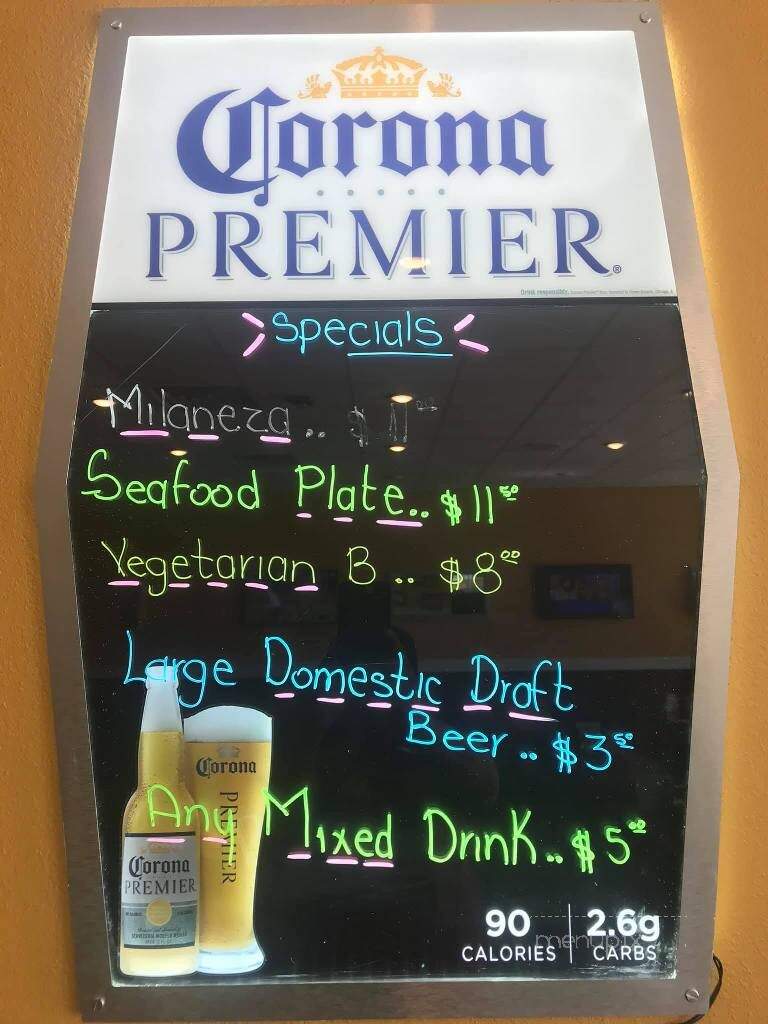 Corona
PREMIER®
Drink responsibly.
Specials
Milaneza.. $11
Seafood Plate.. $11.50
Vegetarian B.. $8.00
Large Domestic Draft
Beer.. $3.50
Any Mixed Drink.. $5.00
Corona
PREMIER
Corona
PREMIER
90 CALORIES | 2.6g CARBS
menupix